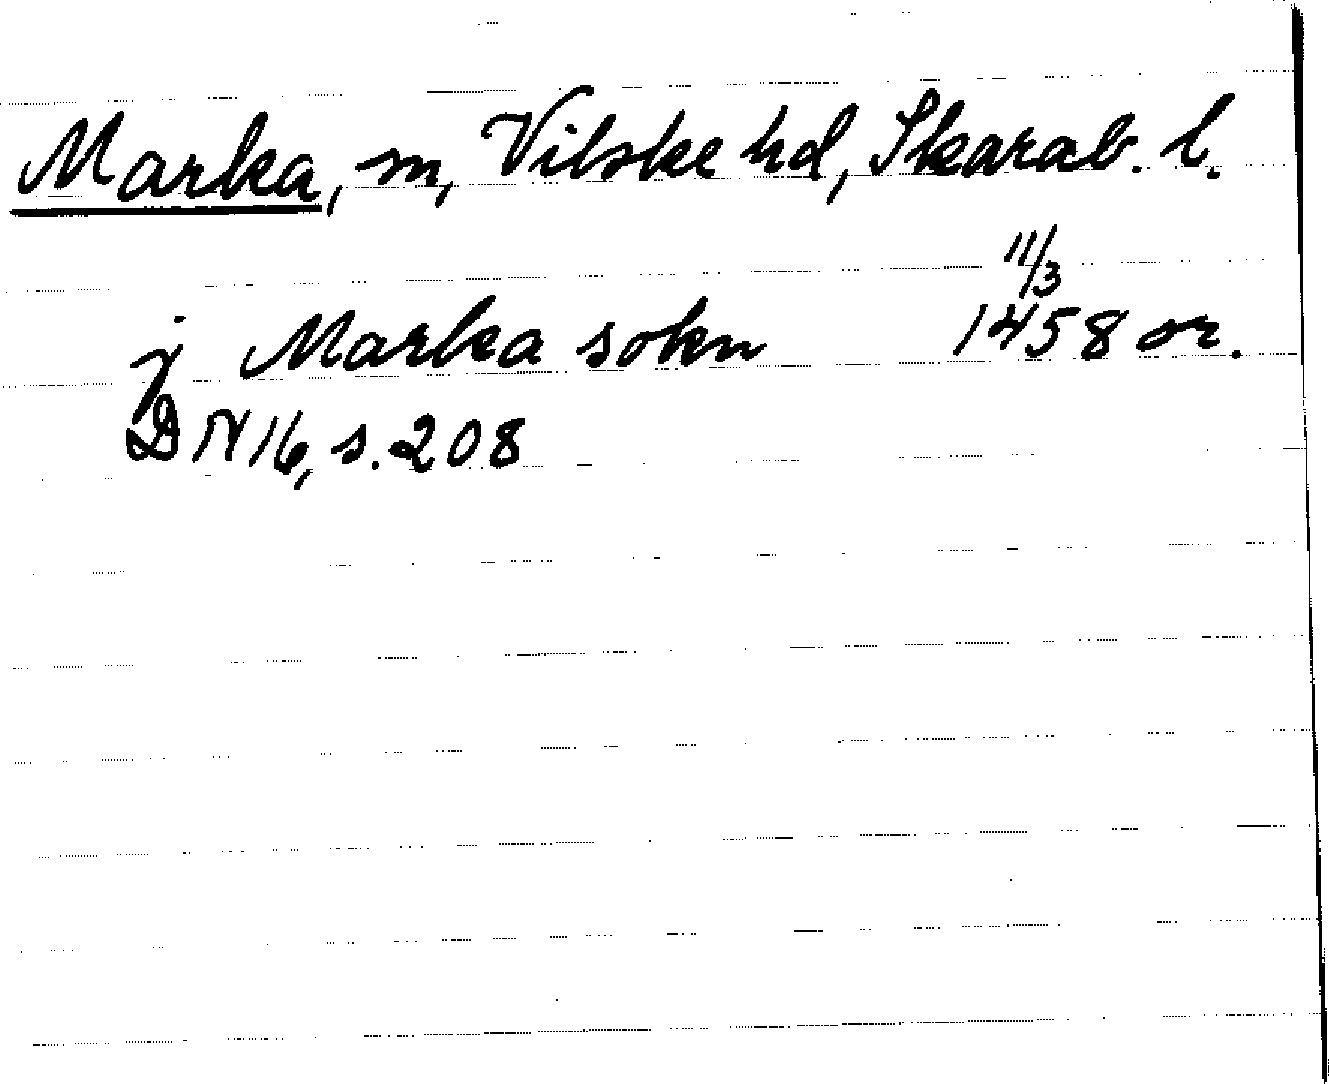 Marka, sn, Vilske hd, Skarab. l.
11/3
j Marka sokn 1458 or.
DN 16, s. 208